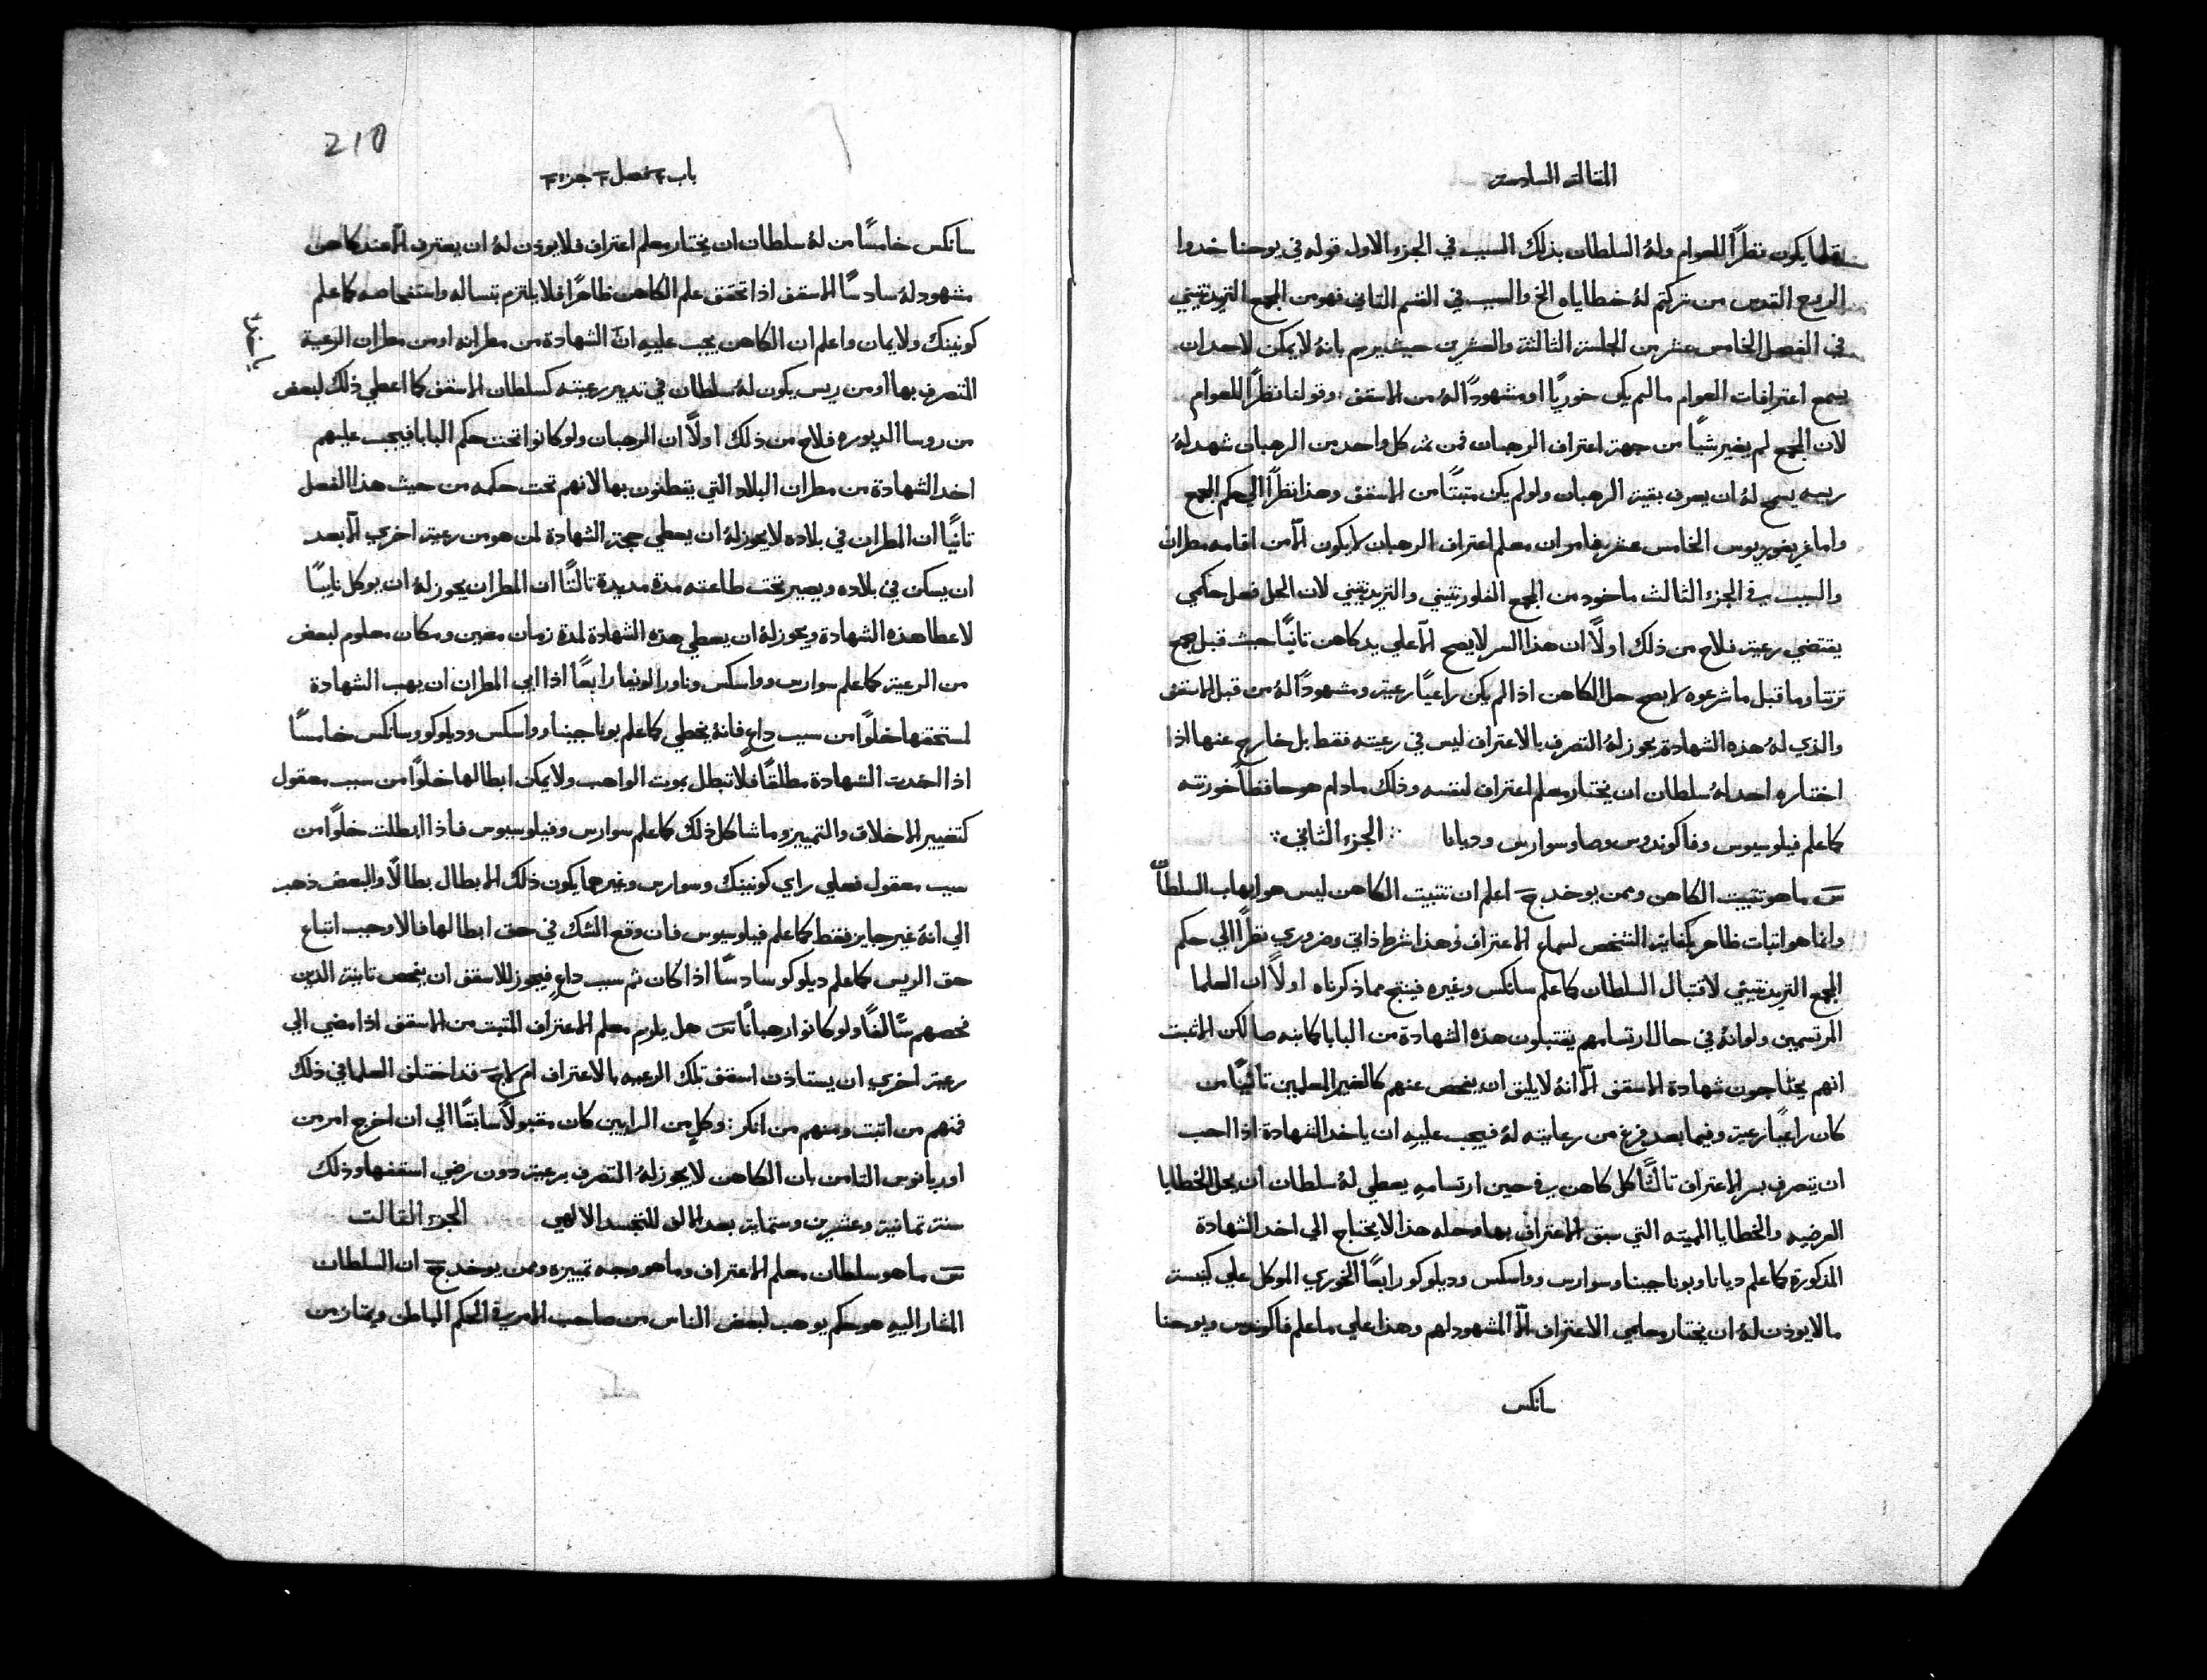 المقالة السادسة
يكون نظراً للعوام ولهُ السلطان بذلك السبب في الجزء الاول قوله في يوحنا خدوا
الروح القدس من تركتم لهُ خطاياه الخ والسبب في القسم التاني فهو من المجمع التريدنتيني
في الفصل الخامس عشر من الجلسة الثالثة والعشرين حيث يرسم بانه لا يمكن لاحد ان
يسمع اعترافات العوام ما لم يكن خوريًا او مشهودًا لهُ من الاسقف وقولنا نظراً للعوام
لان المجمع لم يغير شيًا من جهة اعتراف الرهبان فمن ثم كل واحد من الرهبان شهد لهُ
ريسه يسمح لهُ ان يعرف بقية الرهبان ولو لم يكن متبتًا من الاسقف وهذا نظراً الي حكم المجمع
واما غريغوريوس الخامس عشر فامر ان معلم اعتراف الرهبان لا يكون الّا من اقامه مطران
والسبب في الجزء الثالث ماخود من المجمع الفلورنتيني والتريدنتيني لان الحل فعل حكمي
يقتضي رعية فلاح من ذلك اولاً ان هذا السر لا يصح الّا علي يد كاهن تانيًا حيث قبل مجمع
ترنتا وما قبل ما شرعوه لا يصح حل الكاهن اذا لم يكن راعيًا رعية ومشهودًا لهُ من قبل الاسقف
والذي لهُ هذه الشهادة يجوز لهُ التصرف بالاعتراف ليس في رعيته فقط بل خارج عنها اذا
اختاره احد لهُ سلطان ان يختار معلم اعتراف لنفسه وذلك ما دام هو حافظاً خورنته
كما علم فيلوسيوس وفاكوندوس وصا وسوارس وديانا ∴ الجزء الثاني ∴
س ما هو تتبيت الكاهن وممن يوخد ج اعلم ان تتبيت الكاهن ليس هو ايهاب السلطان
وانما هو اتبات ظاهر بكفاية الشخص لسماع الاعتراف وهذا شرط ذاتي وضروري نظراً الي حكم
المجمع التريدنتيني لاقتبال السلطان كما علم سانكس وغيره فينتج مما ذكرناه اولاً ان العلما
المرتسمين ولو انهُ في حال ارتسامهم يقتبلون هذه الشهادة من البابا كما بنه صا لكن الاثبت
انهم يحتاجون شهادة الاسقف الّا انهُ لا يليق ان يفحص عنهم كالغير المعلمين تانيًا من
كان راعيًا رعية وفيما بعد فرغ من رعايته لهُ فيجب عليهِ ان ياخد الشهادة اذا احب
ان يتصرف بسر الاعتراف تالتًا كل كاهن في حين ارتسامهِ يعطي لهُ سلطان ان يحل الخطايا
العرضيه والخطايا المميته التي سبق الاعتراف بها وحله هذا لا يحتاج الي اخد الشهادة
المذكورة كما علم ديانا وبوناجينا وسوارس وواسكس وديلوكو رابعًا الخوري الموكل علي كنيسة
ما لا يوذن لهُ ان يختار معلمي الاعتراف الّا المشهود لهم وهذا علي ما علم فاكوندوس ويوحنا
سانكس
210
باب ٢ فصل ٢ جزء ٢
سانكس خامسًا من لهُ سلطان ان يختار معلم اعتراف فلا يوذن لهُ ان يعترف الّا عند كاهن
مشهود لهُ سادسًا الاسقف اذا تحقق علم الكاهن ظاهرًا فلا يلتزم بتساله واستفحاصه كما علم
كونينك ولايمان واعلم ان الكاهن يجب عليهِ اخد الشهادة من مطرانه او من مطران الرعية
المتصرف بها او من ريس يكون لهُ سلطان في تدبير رعيته كسلطان الاسقف كما اعطي ذلك لبعض
من روسا الديوره فلاح من ذلك اولاً ان الرهبان ولو كانوا تحت حكم البابا فيجب عليهم
اخد الشهادة من مطران البلاد التي يقطنون بها لانهم تحت حكمه من حيث هذا الفعل
تانيًا ان المطران في بلاده لا يجوز لهُ ان يعطي حجة الشهادة لمن هو من رعية اخري الّا بعد
ان يسكن في بلاده ويصير تحت طاعته مدة مديدة تالتًا ان المطران يجوز لهُ ان يوكل نايبًا
لاعطا هذه الشهادة ويجوز لهُ ان يعطي هذه الشهادة لمدة زمان معين ومكان معلوم لبعض
من الرعية كما علم سوارس وواسكس وناورا وبونغا رابعًا اذا ابي المطران ان يهب الشهادة
لمستحقها خلوًا من سبب داعٍ فانهُ يخطي كما علم بوناجينا وواسكس وديلوكو وسانكس خامسًا
اذا اخدت الشهادة مطلقًا فلا تبطل بموت الواهب ولا يمكن ابطالها خلوًا من سبب معقول
كتغيير الاخلاق والتمييز وما شاكل ذلك كما علم سوارس وفيلوسيوس فاذا ابطلت خلوًا من
سبب معقول فعلي راي كونينك وسوارس وغيرهما يكون ذلك الابطال بطالاً والبعض ذهب
الي انهُ غير جايز فقط كما علم فيلوسيوس فان وقع الشك في حق ابطالها فالاوجب اتباع
حق الريس كما علم ديلوكو سادسًا اذا كان ثم سبب داعٍ فيجوز للاسقف ان يفحص تانية الذين
فحصهم سالفًا ولو كانوا رهبانًا س هل يلزم معلم الاعتراف المتبت من الاسقف اذا مضي الي
رعية اخري ان يستاذن اسقف تلك الرعيه بالاعتراف ام لا ج قد اختلف العلما في ذلك
فمنهم من اتبت ومنهم من انكر : وكل من الرايين كان مقبولاً سابقًا الي ان اخرج امر من
اوربانوس التامن بان الكاهن لا يجوز لهُ التصرف برعية دون رضي اسقفها وذلك
سنة تمانية وعشرين وستماية بعد الالف للتجسد الالهي الجزء التالت
س ما هو سلطان معلم الاعتراف وما هو وجه تمييزه وممن يوخد ج ان السلطان
المشار اليهِ هو حكم يوهب لبعض الناس من صاحب الامر في الحكم الباطن ويمتاز من